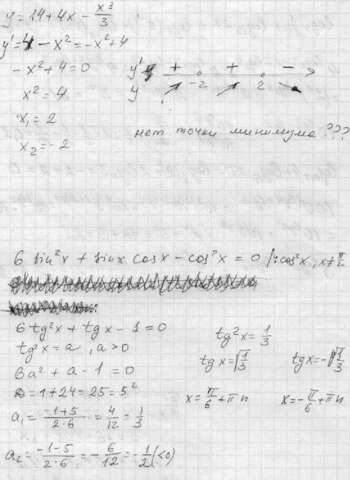 y = 14 + 4x - x³/3
y' = 4 - x² = -x² + 4
-x² + 4 = 0
x² = 4
x₁ = 2
x₂ = -2
y' + -2 + 2 -
y
нет точки минимума ???
6 sin²x + sinx cosx - cos²x = 0 /: cos²x, x ≠ π/2
6 tg²x + tgx - 1 = 0
tg²x = a, a > 0
6a² + a - 1 = 0
D = 1 + 24 = 25 = 5²
a₁ = (-1+5)/(2·6) = 4/12 = 1/3
a₂ = (-1-5)/(2·6) = -6/12 = -1/2 (<0)
tg²x = 1/3
tgx = √(1/3) tgx = -√(1/3)
x = π/6 + πn x = -π/6 + πn